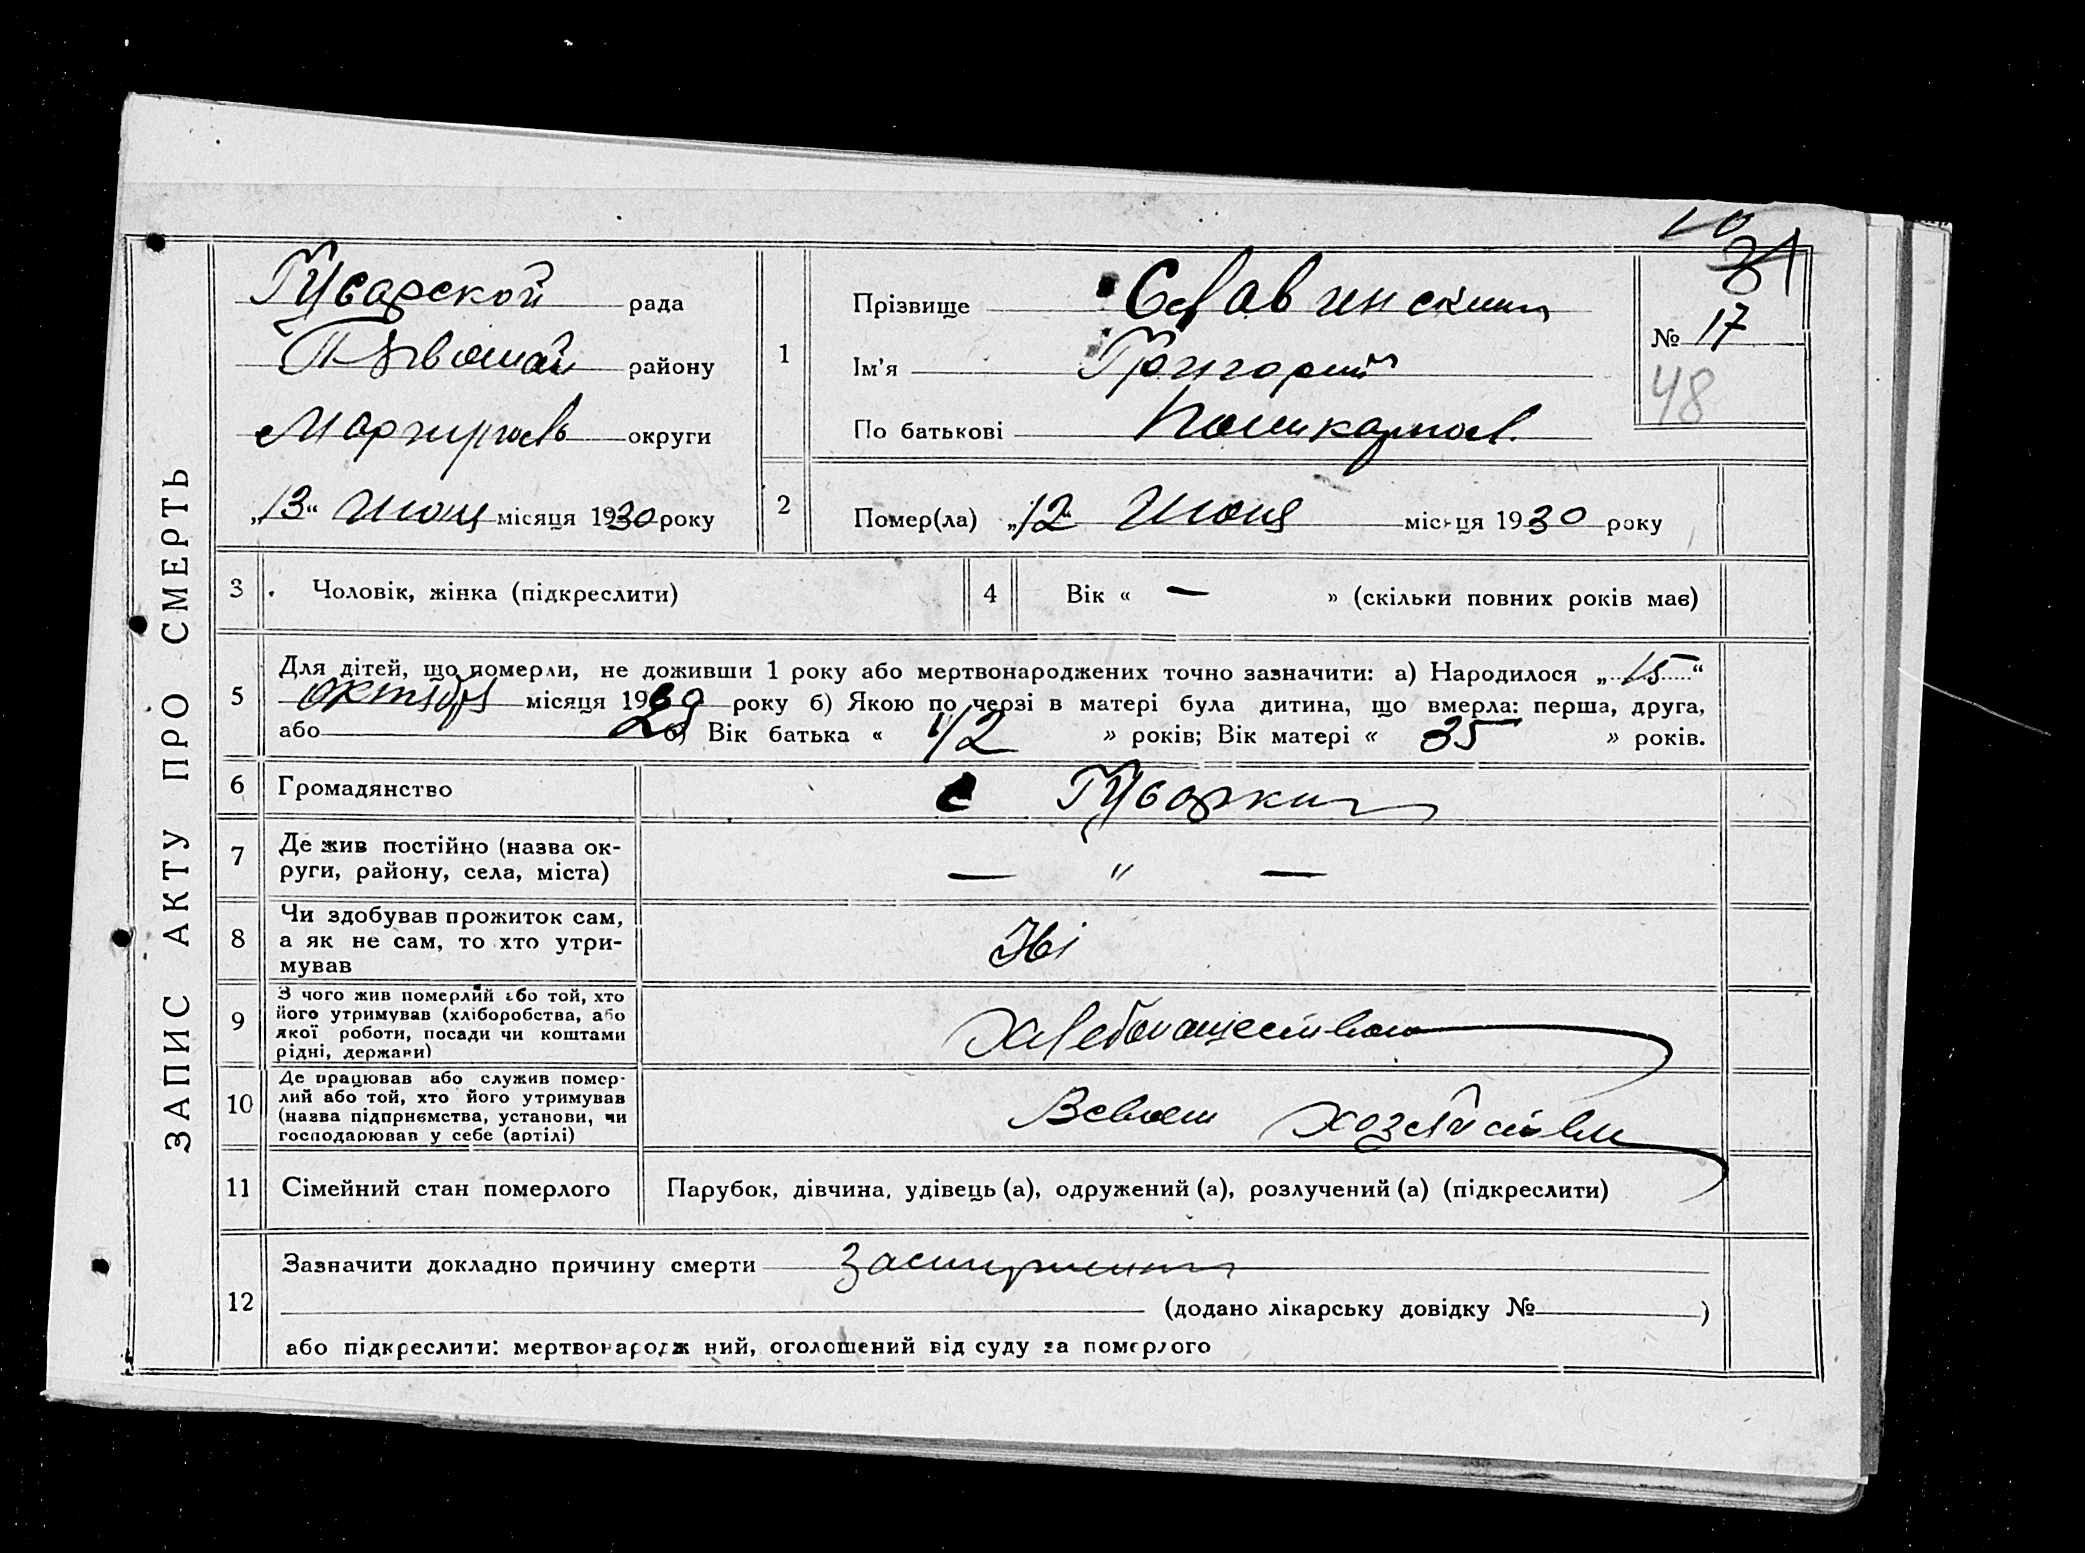 ЗАПИС АКТУ ПРО СМЕРТЬ
31
рада
району
округи
„13“ Июня місяця 1930 року
1
Прізвище Славинский
Ім'я Григорий
По батькові
№ 17
48
2
Помер(ла) „12“ Июня місяця 1930 року
3
Чоловік, жінка (підкреслити)
4
Вік « — » (скільки повних років має)
5
Для дітей, що померли, не доживши 1 року або мертвонароджених точно зазначити: а) Народилося „15“
октября місяця 19 29 року б) Якою по черзі в матері була дитина, що вмерла: перша, друга,
або в) Вік батька « 42 » років; Вік матері « 35 » років.
6
Громадянство
с
7
Де жив постійно (назва ок-
руги, району, села, міста)
— " —
8
Чи здобував прожиток сам,
а як не сам, то хто утри-
мував
Ні
9
З чого жив померлий або той, хто
його утримував (хліборобства, або
якої роботи, посади чи коштами
рідні, держави)
10
Де працював або служив помер-
лий або той, хто його утримував
(назва підприємства, установи, чи
господарював у себе (артілі)
11
Сімейний стан померлого
Парубок, дівчина, удівець (а), одружений (а), розлучений (а) (підкреслити)
12
Зазначити докладно причину смерти
(додано лікарську довідку № )
або підкреслити: мертвонароджений, оголошений від суду за померлого